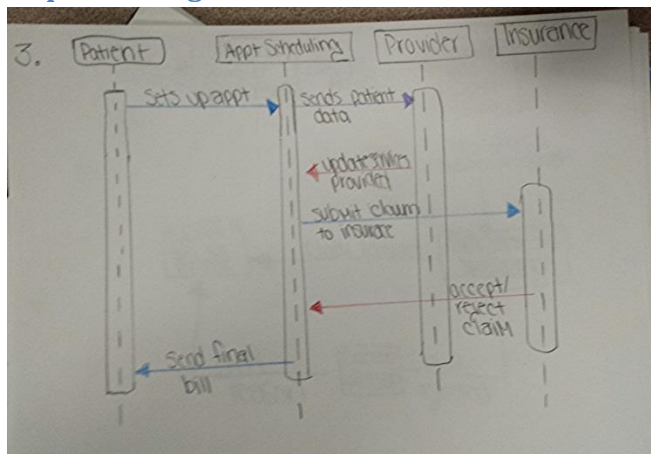 3.
Patient
Appt Scheduling
Provider
Insurance
Sets up appt
sends patient
data
provided
submit claim
to
accept/
reject
claim
Send final
bill